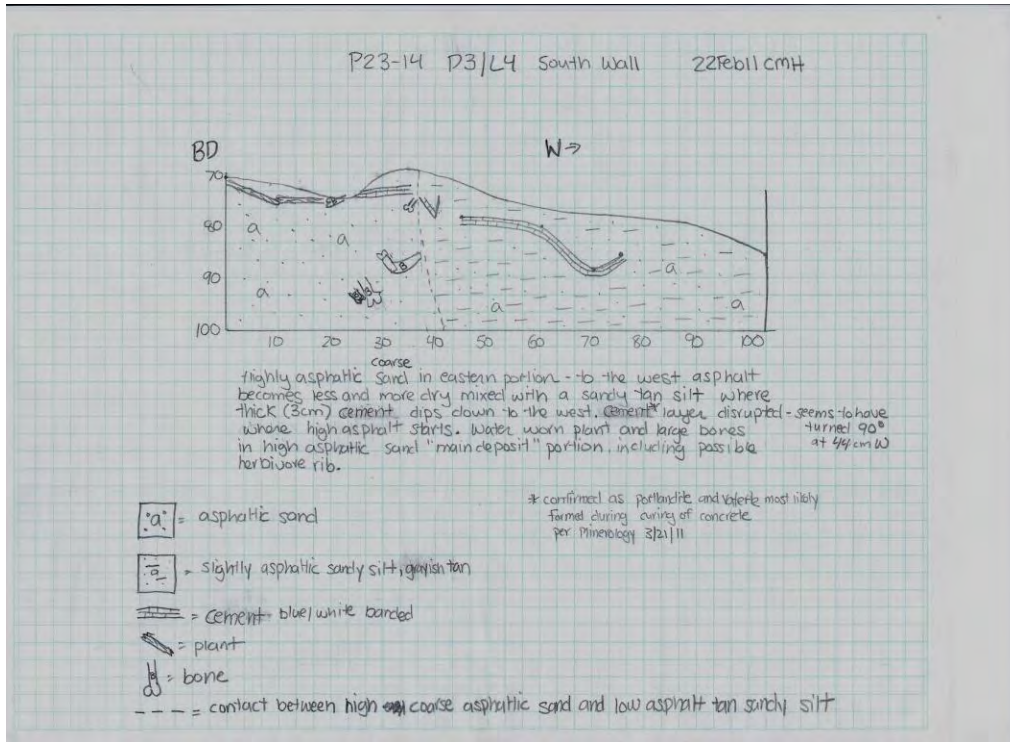 P23-14 D3/L4 South Wall 22Feb11 CMH
BD
W→
70
80
90
100
a
a
a
a
a
a
10 20 30 40 50 60 70 80 90 100
coarse
Highly asphaltic sand in eastern portion - to the west asphalt
becomes less and more dry mixed with a sandy tan silt where
thick (3cm) cement dips down to the west. cement* layer disrupted - seems to have
where high asphalt starts. Water worn plant and large bones turned 90°
in high asphaltic sand "main deposit" portion, including possible at 44cm W
herbivore rib.
* confirmed as portlandite and vaterite most likely
formed during curing of concrete
per Minerology 3/21/11
a = asphaltic sand
a = slightly asphaltic sandy silt, grayish tan
= cement blue/white banded
= plant
= bone
--- = contact between high coarse asphaltic sand and low asphalt tan sandy silt